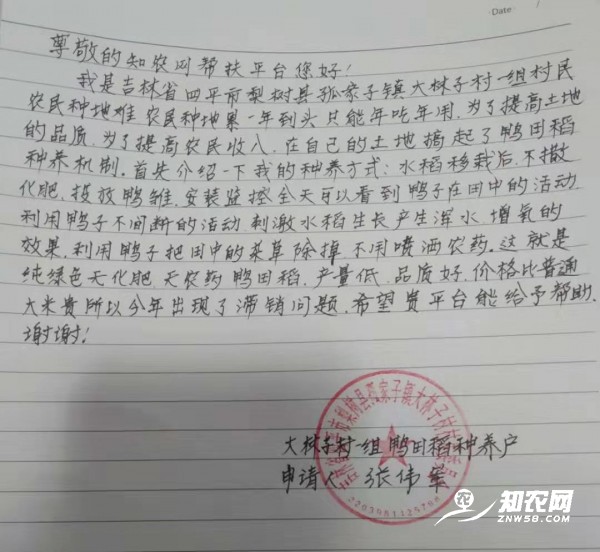 Date:
尊敬的知农网帮扶平台您好!
我是吉林省四平市梨树县孤家子镇大林子村一组村民
农民种地难 农民种地累 一年到头只能年吃年用,为了提高土地
的品质,为了提高农民收入,在自己的土地搞起了鸭田稻
种养机制.首先介绍一下我的种养方式:水稻移栽后,不撒
化肥,投放鸭雏,安装监控全天可以看到鸭子在田中的活动,
利用鸭子不间断的活动 刺激水稻生长产生浑水 增氧的
效果,利用鸭子把田中的杂草除掉 不用喷洒农药.这就是
纯绿色无化肥 无农药 鸭田稻.产量低,品质好,价格比普通
大米贵所以今年出现了滞销问题,希望贵平台能给予帮助.
谢谢!
大林子村一组鸭田稻种养户
申请人 张伟军
知农网
ZNW58.COM